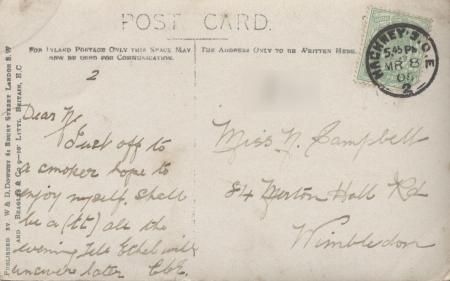 POST CARD.
FOR INLAND POSTAGE ONLY THIS SPACE MAY
NOW BE USED FOR COMMUNICATION.
THE ADDRESS ONLY TO BE WRITTEN HERE.
HACKNEY. S.O. E
5.45 PM
MR 8
05
2
2
Dear N.
Just off to
a smoker hope to
enjoy myself. Shall
be a (tt) all the
evening Tell Ethel will
answer later
Miss N. Campbell
84 Merton Hall Rd
Wimbledon
PUBLISHED BY W & D. DOWNEY 61 EBURY STREET LONDON S.W
AND BEAGLES & CO 9-10 LITTLE BRITAIN, E.C